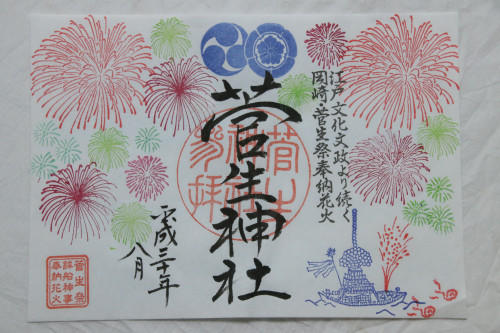 江戸文化文政より続く
岡崎・菅生祭奉納花火
菅生神社
菅生
神社
参拝
平成三十年
八月
菅生祭
鉾船神事
奉納花火